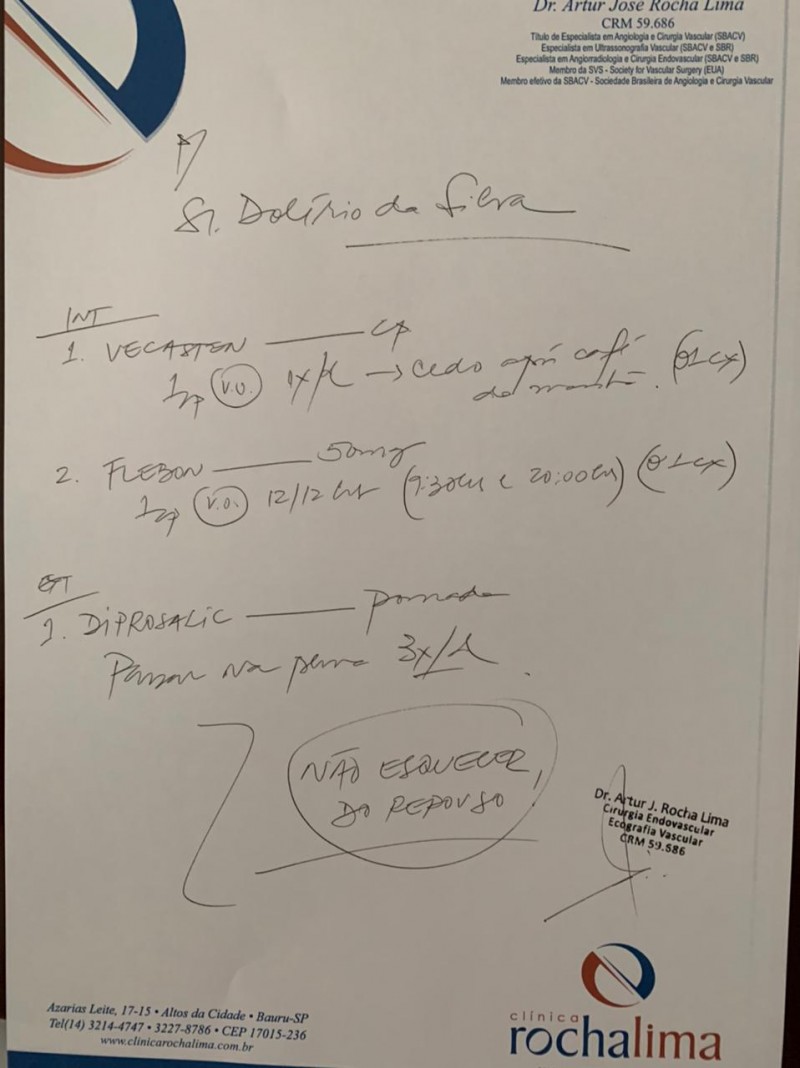 Dr. Artur José Rocha Lima
CRM 59.686
Título de Especialista em Angiologia e Cirurgia Vascular (SBACV)
Especialista em Ultrassonografia Vascular (SBACV e SBR)
Especialista em Angiorradiologia e Cirurgia Endovascular (SBACV e SBR)
Membro da SVS - Society for Vascular Surgery (EUA)
Membro efetivo da SBACV - Sociedade Brasileira de Angiologia e Cirurgia Vascular
P/
Sr. Dolírio da Silva
INT
1. VECASTEN cp
1cp V.O. 1x/d → cedo após café
da manhã. (01 cx)
2. FLEBON 50mg
1cp V.O. 12/12hs (9:30hs e 20:00hs) (01 cx)
EXT
1. DIPROSALIC pomada
Passar na perna 3x/d.
NÃO ESQUECER,
DO REPOUSO
Dr. Artur J. Rocha Lima
Cirurgia Endovascular
Ecografia Vascular
CRM 59.686
Azarias Leite, 17-15 • Altos da Cidade • Bauru-SP
Tel(14) 3214-4747 • 3227-8786 • CEP 17015-236
www.clinicarochalima.com.br
clínica
rochalima